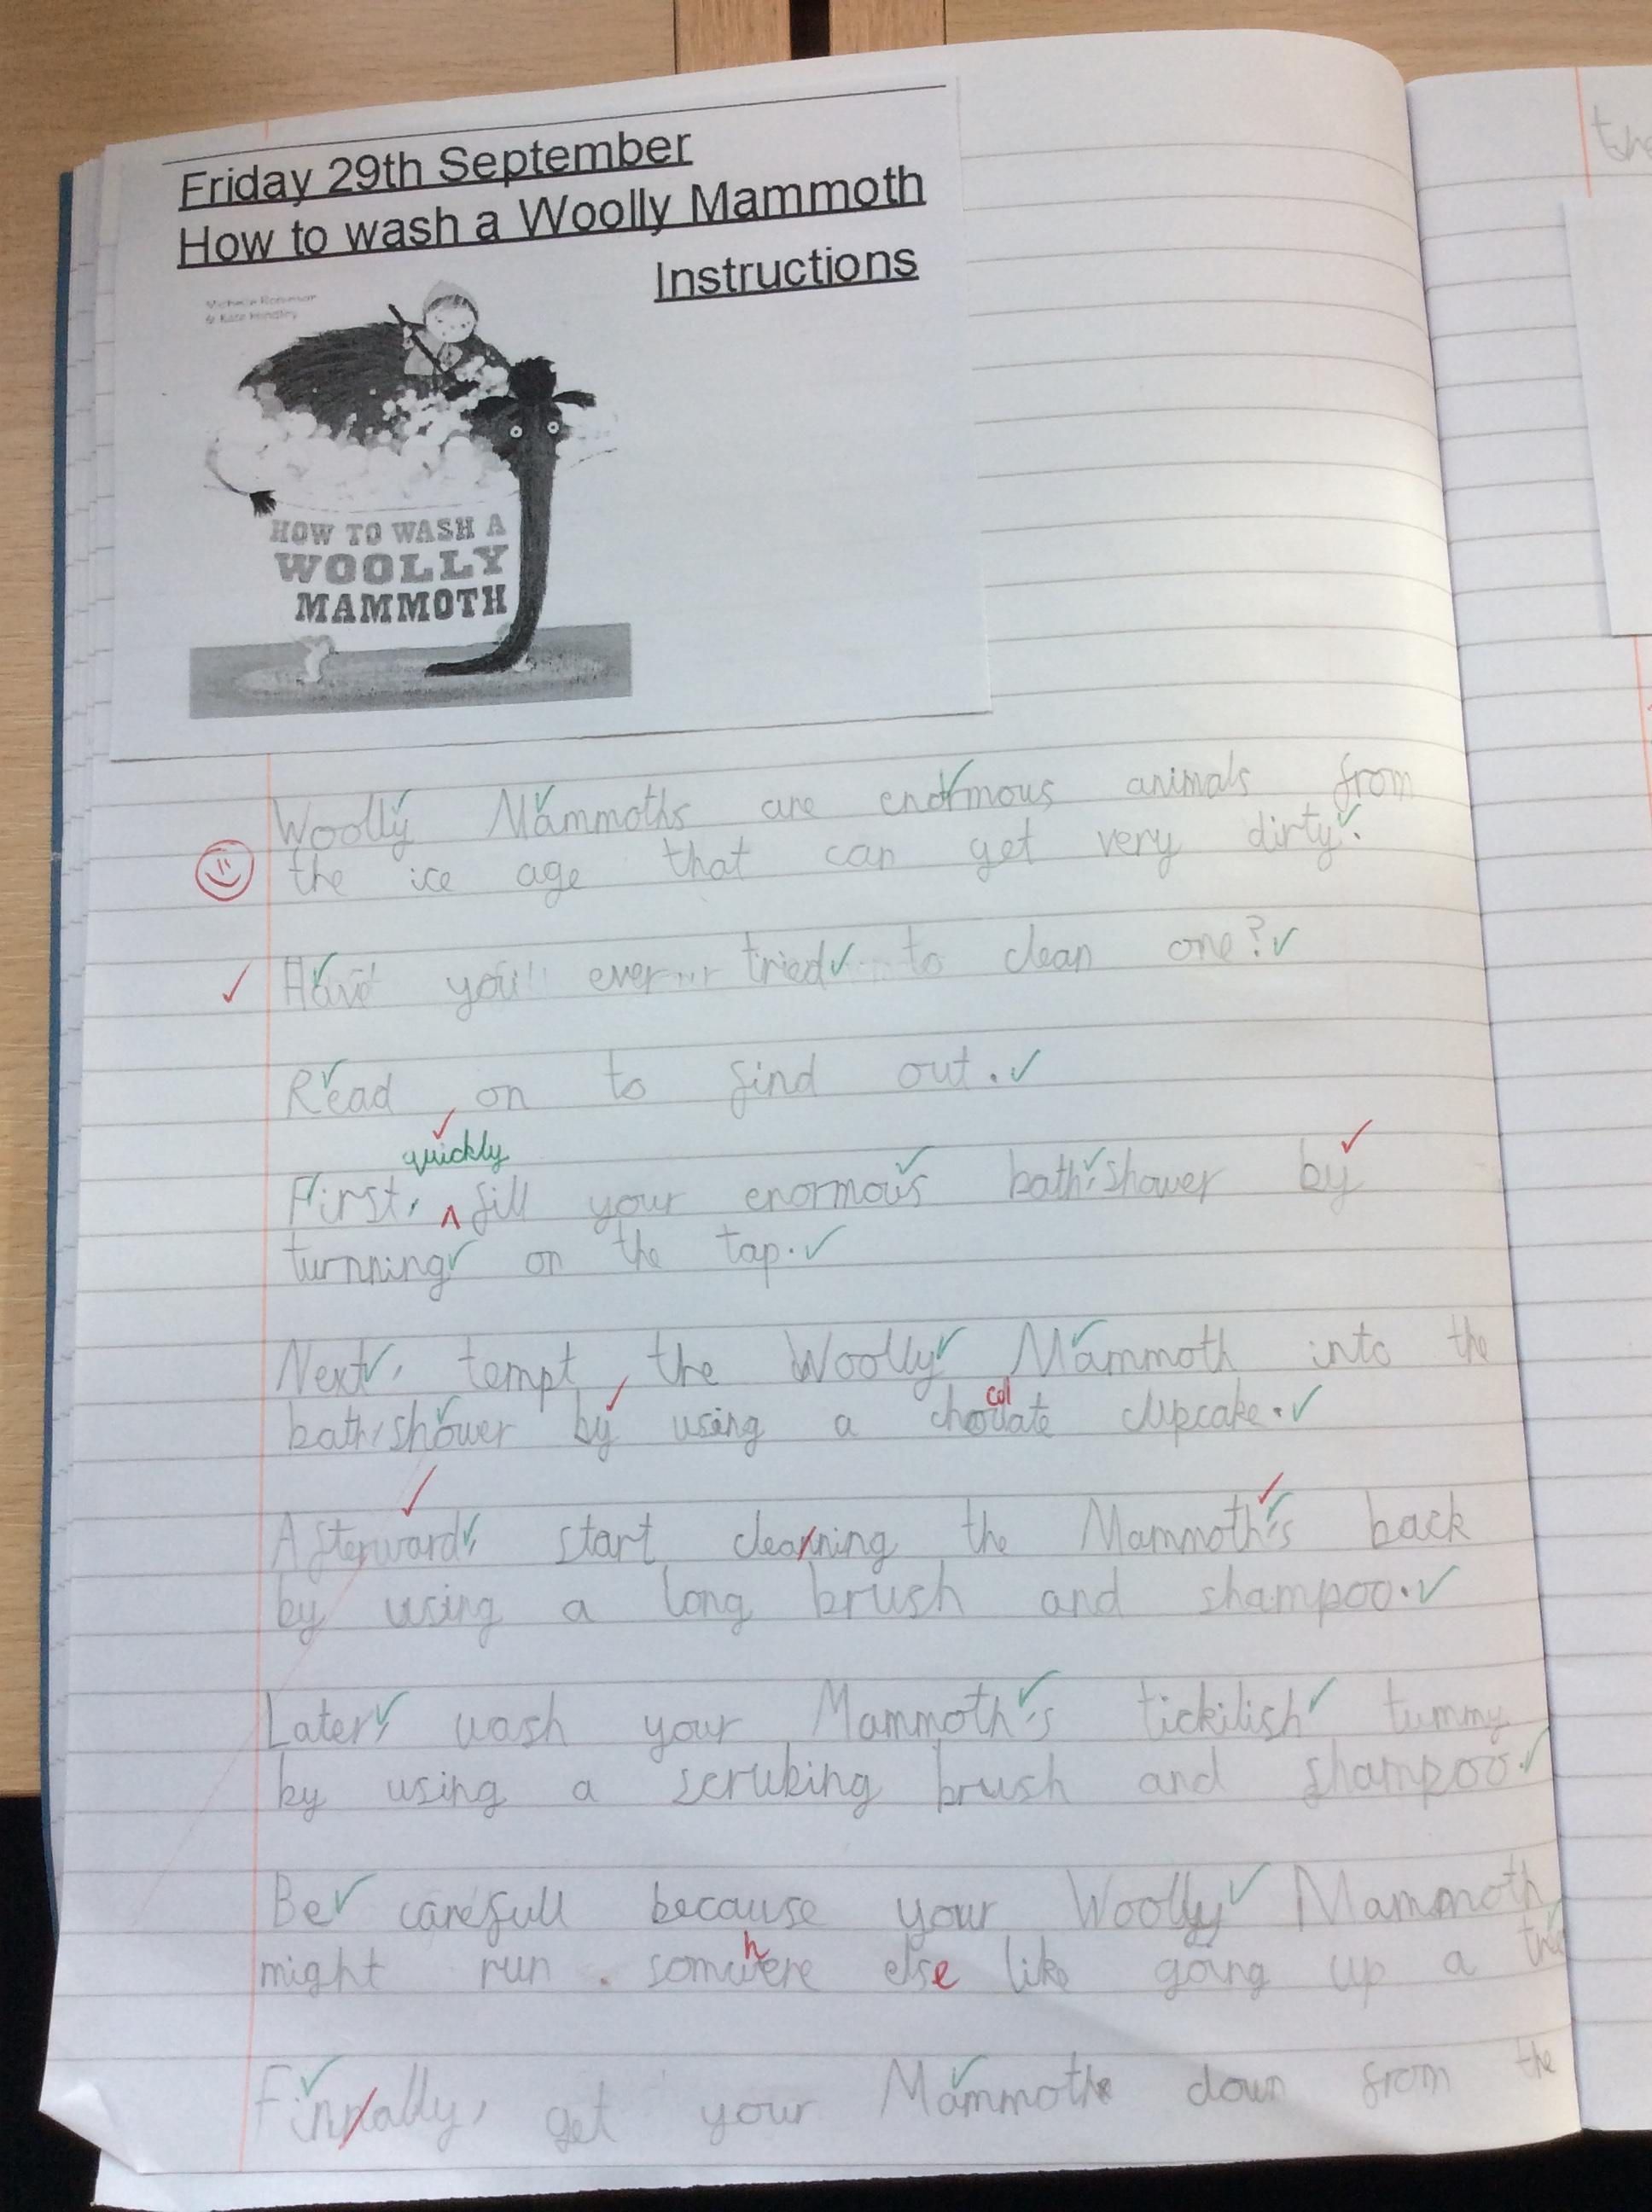 Friday 29th September
How to wash a Woolly Mammoth
Instructions
Michelle Robinson
& Kate Hindley
HOW TO WASH A
WOOLLY
MAMMOTH
Woolly Mammoths are enormous animals from
the ice age that can get very dirty.
Have you ever tried to clean one?
Read on to find out.
quickly
First, ^ fill your enormous bath/shower by
turnning on the tap.
Next, tempt the Woolly Mammoth into the
col
bath/shower by using a chocolate cupcake.
Afterward, start cleanning the Mammoth's back
by using a long brush and shampoo.
Later, wash your Mammoth's tickilish tummy
by using a scrubing brush and shampoo.
Be carefull because your Woolly Mammoth
might run somewhere else like going up a
Finnally, get your Mammoth down from the
the